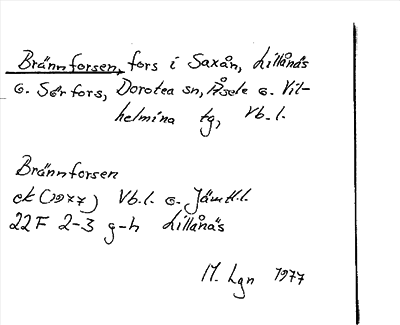 Brännforsen, fors i Saxån, Lillånäs
o. Sör fors, Dorotea sn, Åsele o. Vil-
helmina tg, Vb. l.
Brännforsen
ek (1977) Vb.l. o. Jämtl.l.
22 F 2-3 g-h Lillånäs
M. Lgn 1977